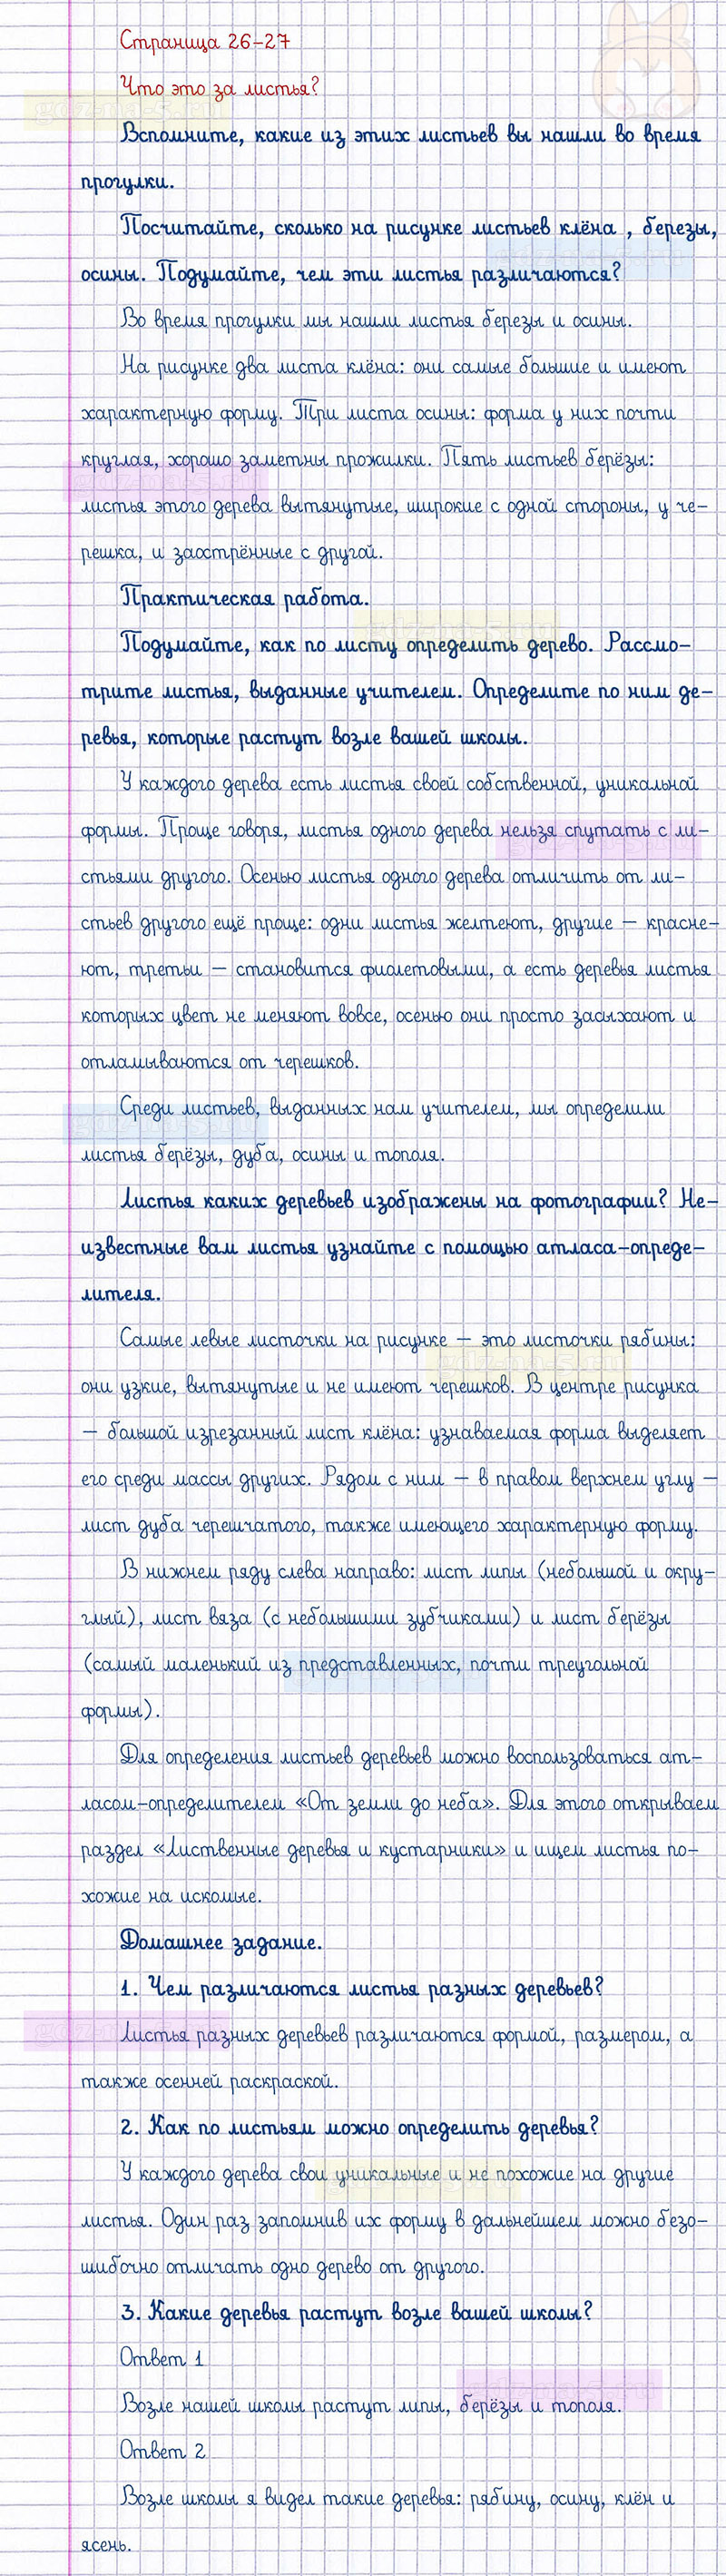 Страница 26-27
Что это за листья?
Вспомните, какие из этих листьев вы нашли во время
прогулки.
Посчитайте, сколько на рисунке листьев клёна , березы,
осины. Подумайте, чем эти листья различаются?
Во время прогулки мы нашли листья березы и осины.
На рисунке два листа клёна: они самые большие и имеют
характерную форму. Три листа осины: форма у них почти
круглая, хорошо заметны прожилки. Пять листьев берёзы:
листья этого дерева вытянутые, широкие с одной стороны, у че-
решка, и заострённые с другой.
Практическая работа.
Подумайте, как по листу определить дерево. Рассмо-
трите листья, выданные учителем. Определите по ним де-
ревья, которые растут возле вашей школы.
У каждого дерева есть листья своей собственной, уникальной
формы. Проще говоря, листья одного дерева нельзя спутать с ли-
стьями другого. Осенью листья одного дерева отличить от ли-
стьев другого ещё проще: одни листья желтеют, другие – красне-
ют, третьи – становится фиолетовыми, а есть деревья листья
которых цвет не меняют вовсе, осенью они просто засыхают и
отламываются от черешков.
Среди листьев, выданных нам учителем, мы определили
листья берёзы, дуба, осины и тополя.
Листья каких деревьев изображены на фотографии? Не-
известные вам листья узнайте с помощью атласа-опреде-
лителя.
Самые левые листочки на рисунке – это листочки рябины:
они узкие, вытянутые и не имеют черешков. В центре рисунка
– большой изрезанный лист клёна: узнаваемая форма выделяет
его среди массы других. Рядом с ним – в правом верхнем углу –
лист дуба черешчатого, также имеющего характерную форму.
В нижнем ряду слева направо: лист липы (небольшой и окру-
глый), лист вяза (с небольшими зубчиками) и лист берёзы
(самый маленький из представленных, почти треугольной
формы).
Для определения листьев деревьев можно воспользоваться ат-
ласом-определителем «От земли до неба». Для этого открываем
раздел «Лиственные деревья и кустарники» и ищем листья по-
хожие на искомые.
Домашнее задание.
1. Чем различаются листья разных деревьев?
Листья разных деревьев различаются формой, размером, а
также осенней раскраской.
2. Как по листьям можно определить деревья?
У каждого дерева свои уникальные и не похожие на другие
листья. Один раз запомнив их форму в дальнейшем можно безо-
шибочно отличать одно дерево от другого.
3. Какие деревья растут возле вашей школы?
Ответ 1
Возле нашей школы растут липы, берёзы и тополя.
Ответ 2
Возле школы я видел такие деревья: рябину, осину, клён и
ясень.